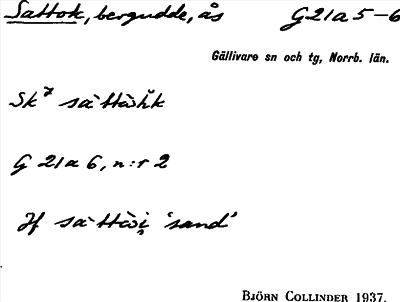 Sattok, bergudde, ås G21a5-6
Gällivare sn och tg, Norrb. län.
G 21a 6, n:r 2
Jf 'sand'
BJÖRN COLLINDER 1937.